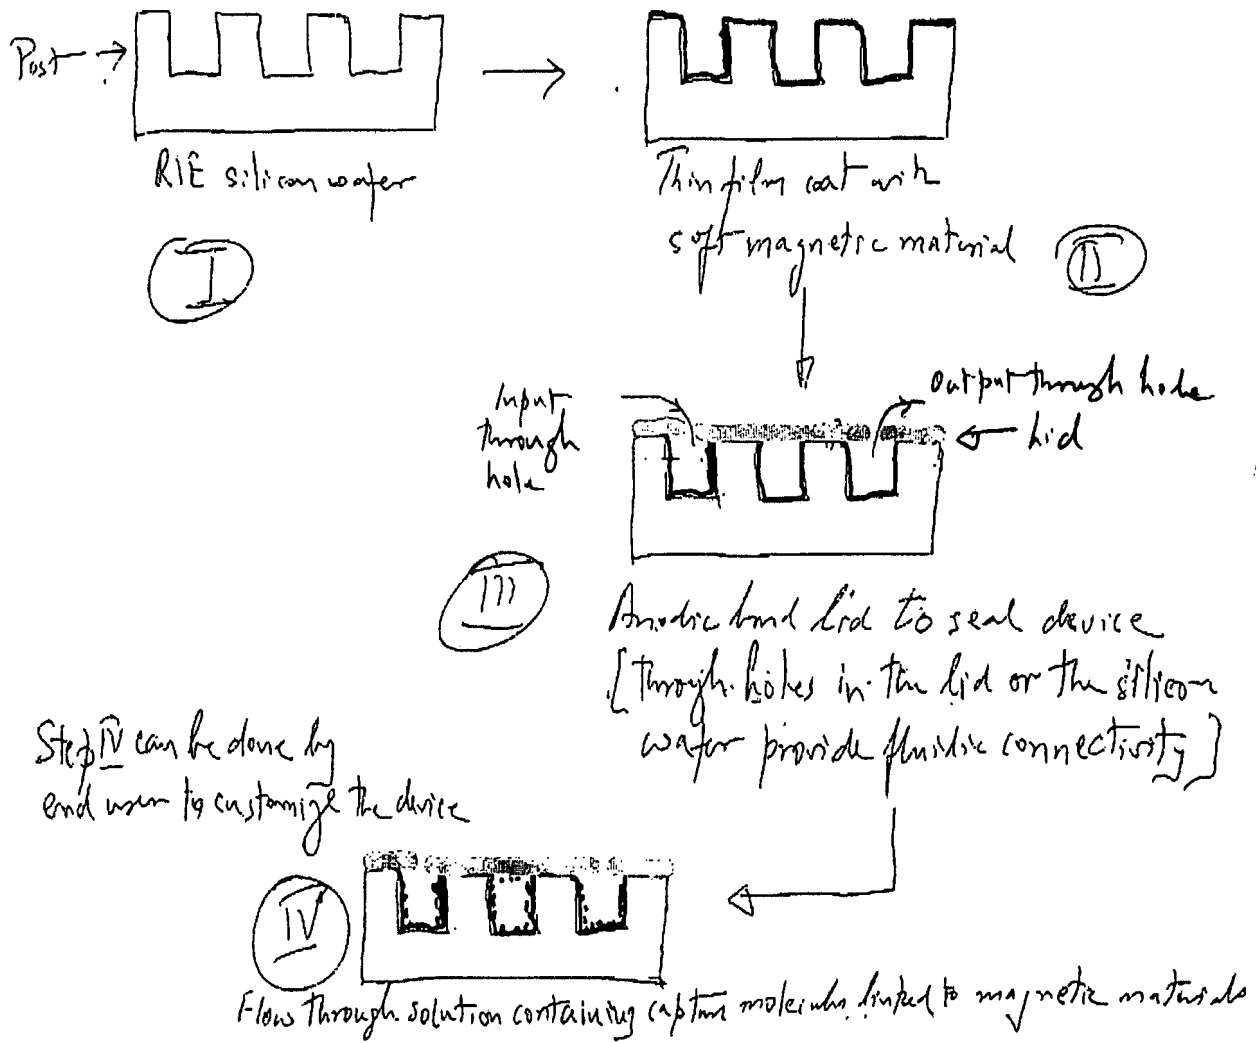 Post
RIE silicon wafer
I
Thin film coat with
soft magnetic material
II
Input
through
hole
Output through hole
Lid
III
Anodic bond lid to seal device
[through-holes in the lid or the silicon
wafer provide fluidic connectivity]
Step IV can be done by
end user to customize the device
IV
Flow through solution containing capture molecules linked to magnetic materials